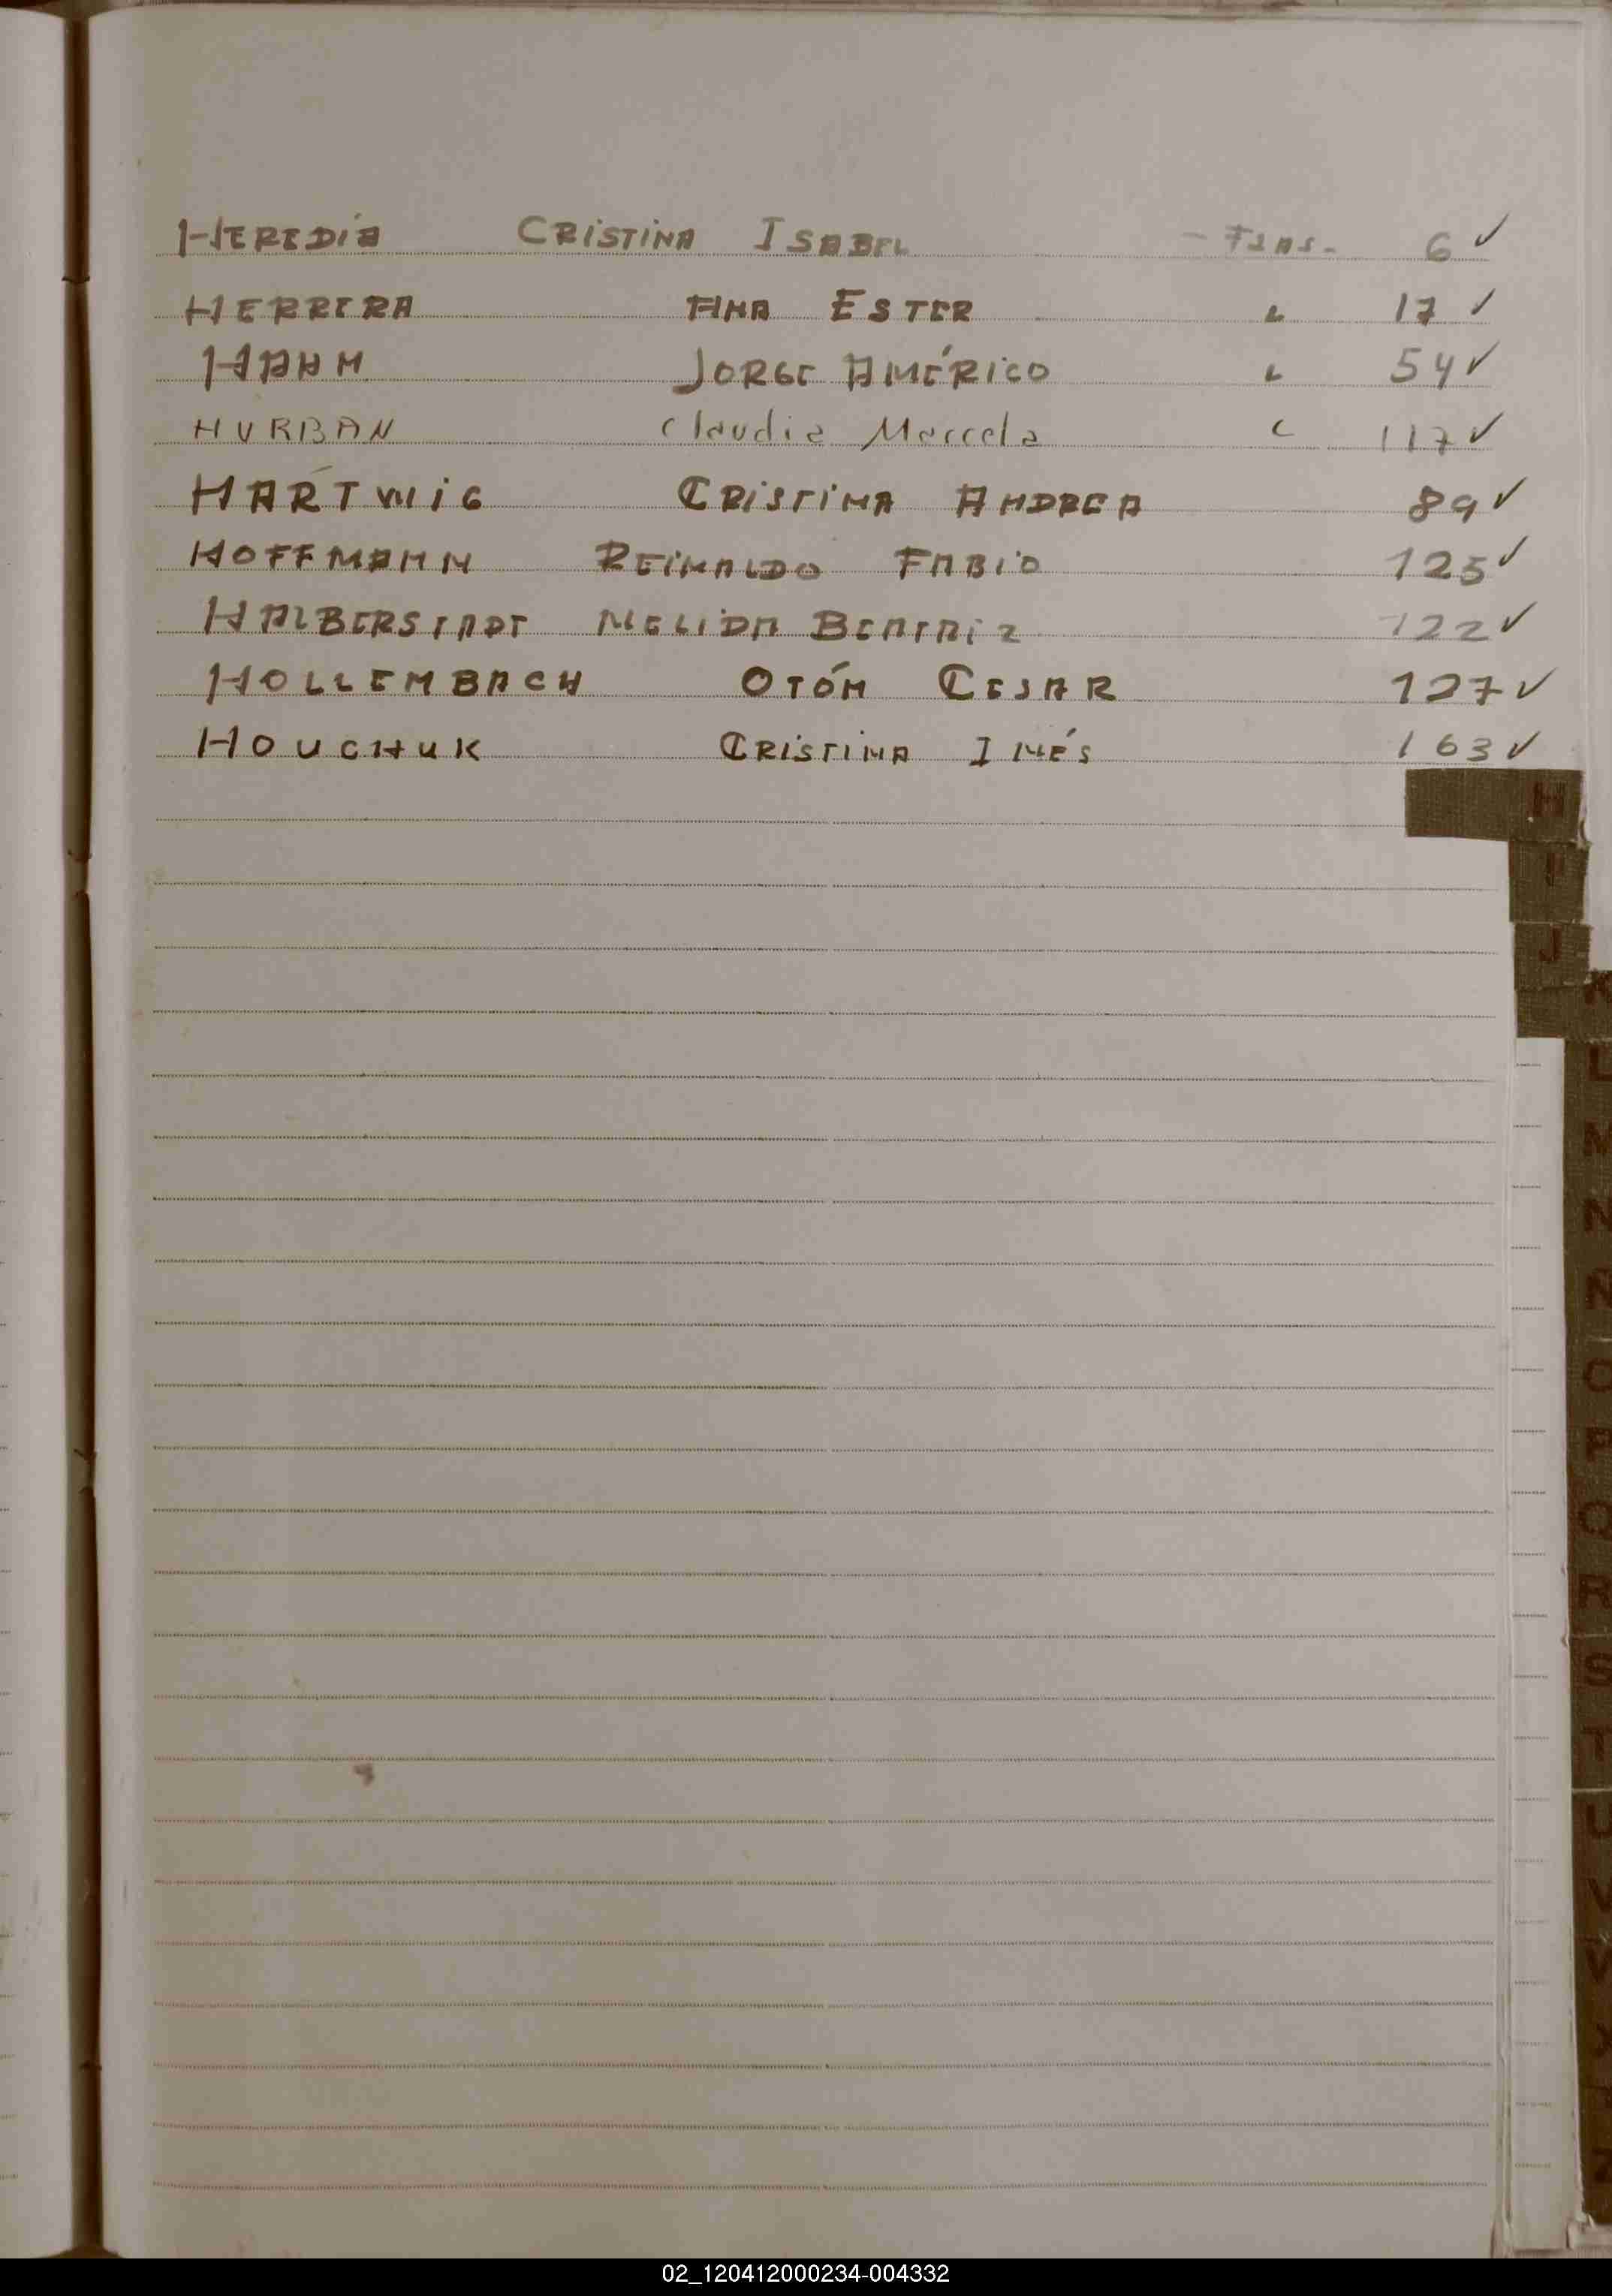 HEREDIA CRISTINA ISABEL - FJAS - 6 ✓
HERRERA ANA ESTER " 17 ✓
HAHN JORGE AMÉRICO " 54 ✓
HURBAN Claudia Marcela " 117 ✓
HARTWIG CRISTINA ANDREA 89 ✓
HOFFMANN REINALDO FABIO 125 ✓
HALBERSTADT NELIDA BEATRIZ 122 ✓
HOLLEMBACH OTÓN CESAR 127 ✓
HOUCHUK CRISTINA INÉS 163 ✓
H
I
J
K
L
M
N
Ñ
O
P
Q
R
S
T
U
V
02_120412000234-004332